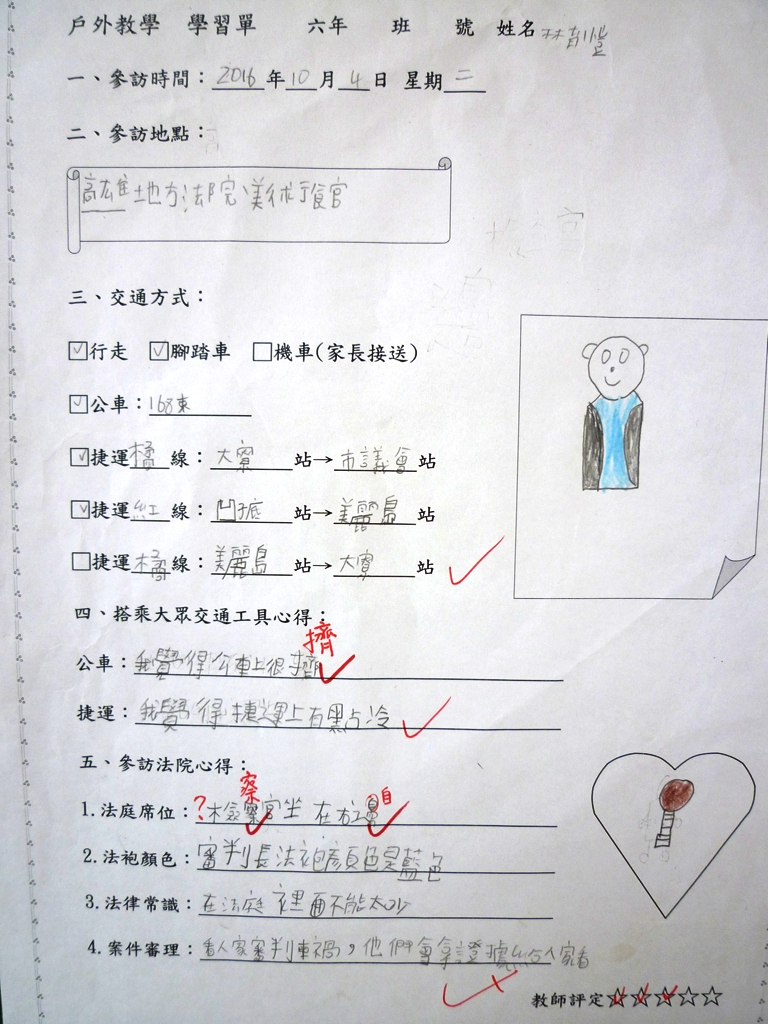 戶外教學 學習單 六年 班 號 姓名 林
一、參訪時間：2016年10月4日 星期二
二、參訪地點：
高雄地方法院、美術館
三、交通方式：
☑行走 ☑腳踏車 □機車(家長接送)
☑公車：168東
☑捷運橘線：大寮站→市議會站
☑捷運紅線：凹子底站→美麗島站
□捷運橘線：美麗島站→大寮站
四、搭乘大眾交通工具心得：
擠
公車：我覺得公車上很擠
捷運：我覺得捷運上有點冷
五、參訪法院心得：
察
1.法庭席位：?檢察官坐在右邊 自
2.法袍顏色：審判長法袍顏色是藍色
3.法律常識：在法庭裡面不能太吵
4.案件審理：看人家審判車禍，他們會拿證據給人家看
教師評定☆☆☆☆☆